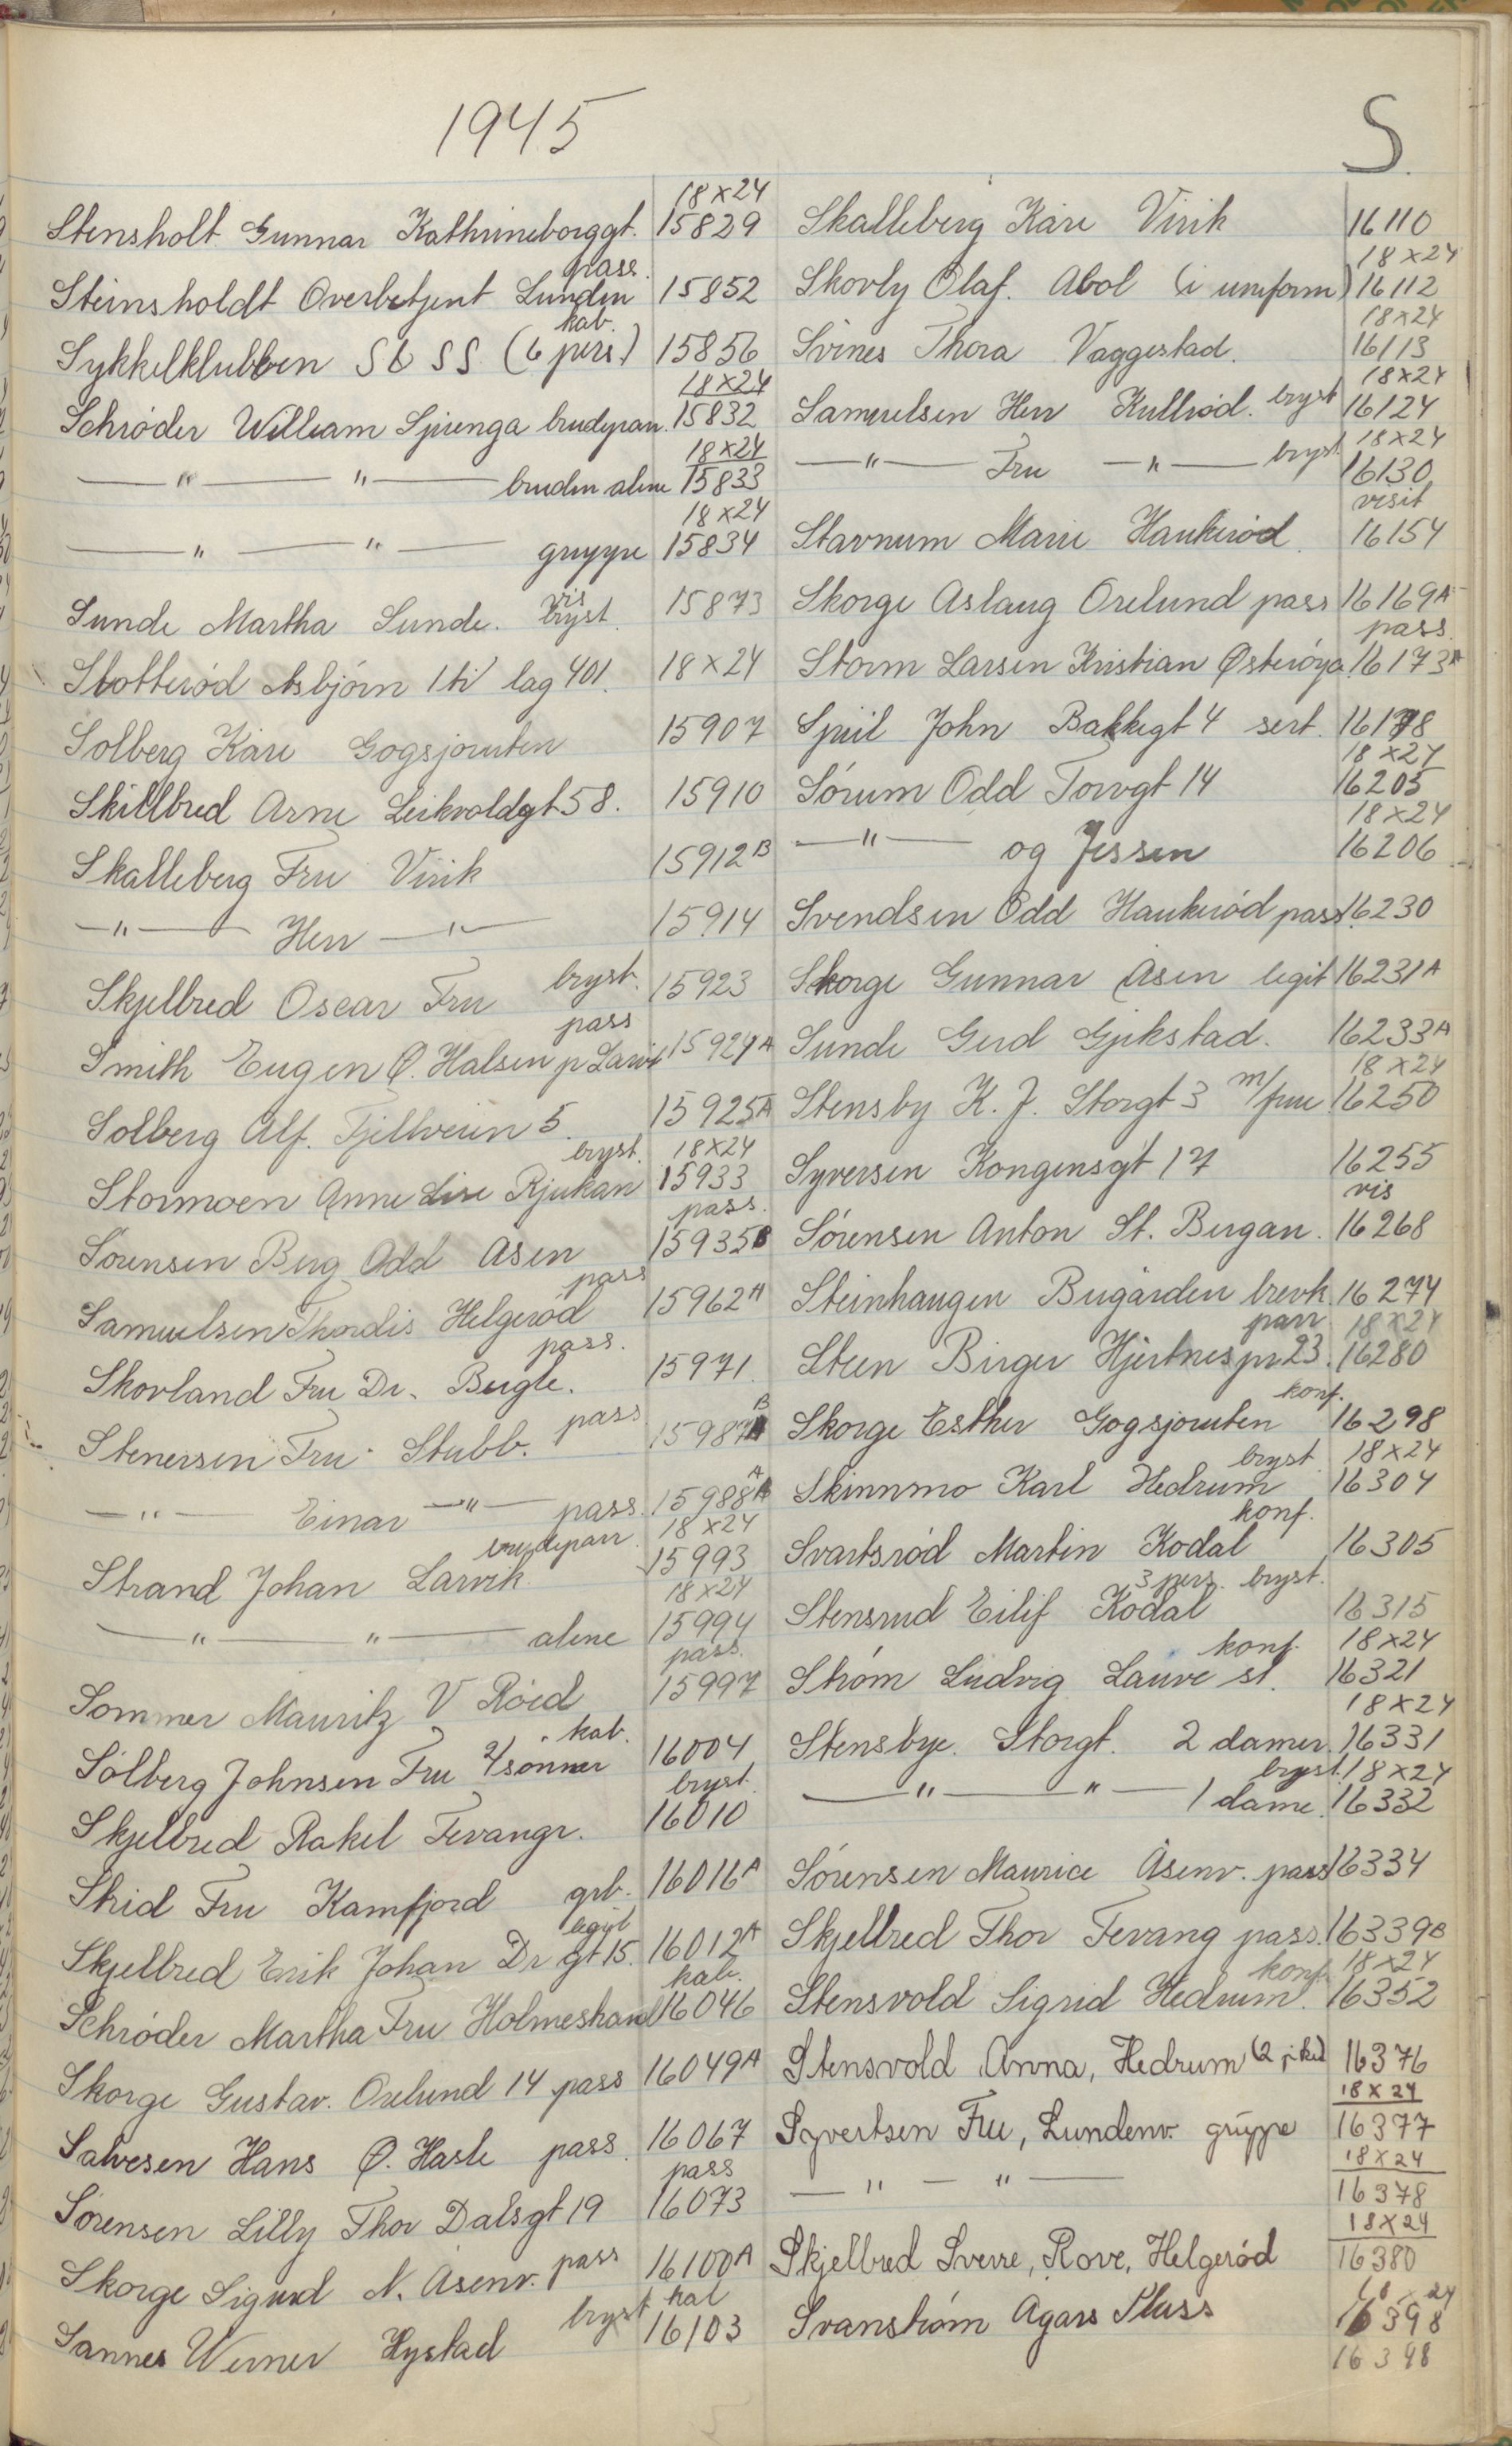 1945
S.
18x24
Stensholt Gunnar Kathrineborggt. 15829
pass.
Steinsholdt Overbetjent Lunden 15852
kab.
Sykkelklubben S6 SS (6 pers.) 15856
18x24
Schrøder William Sjuenga brudepar. 15832
18x24
—"— " — bruden alene 15833
18x24
—"— " — gruppe 15834
vis
Sunde Martha Sunde. bryst. 15873
Stotterød Asbjørn 1ti lag 401. 18x24
Solberg Kåre Gogsjøruten 15907
Skillbred Arne Leikvoldgt 58. 15910
Skalleberg Fru Virik 15912B
—"— Herr —"— 15914
Skjelbred Oscar Fru bryst. 15923
pass
Smith Eugen Ø. Halsen p Larvik 15924A
Solberg Alf. Fjellveien 5. 15925A
bryst. 18x24
Stormoen Anne Lise Rjukan 15933
pass.
Sørensen Berg Odd Åsen 15935B
pass
Samuelsen Thordis Helgerød 15962A
pass.
Skovland Fru Dr. Bugle. 15971.
Stenersen Fru Stubb. pass. 15987B
—"— Einar —"— pass. 15988A
brudeparr. 18x24
Strand Johan Larvik 15993
18x24
—"— " — alene 15994
pass.
Sommer Mauritz V Røed 15997
kab.
Solberg Johnsen Fru 2/sønner 16004
bryst.
Skjelbred Rakel Fevangr. 16010
Skid Fru Kamfjord grb. 16016A
legit
Skjelbred Erik Johan Dr gt 15. 16012A
kab.
Schrøder Martha Fru Holmeshand 16046
Skorge Gustav. Orelund 14 pass 16049A
Salvesen Hans Ø. Hasle pass. 16067
pass
Sørensen Lilly Thor Dalsgt 19 16073
Skorge Sigurd N. Åsenv. pass 16100A
bryst kab
Sannes Werner Hystad 16103
Skalleberg Kåre Virik 16110
18x24
Skovly Olaf. Abol (i uniform) 16112
18x24
Svines Thora Vaggestad. 16113
18x24
Samuelsen Herr Kullrød. bryst 16124
18x24
—"— Fru —"— bryst. 16130
visit
Stavnum Marie Haukerød. 16154
Skorge Aslaug Orelund pass 16169A
pass.
Storm Larsen Kristian Østerøya. 16173A
Spiil John Bakkegt 4 sert. 16178
18x24
Sørum Odd Torvgt 14 16205
18x24
—"— og Jessen 16206
Svendsen Odd Haukerød pass. 16230
Skorge Gunnar Åsen legit 16231A
Sunde Gerd Gjekstad. 16233A
18x24
Stensby K. J. Storgt 3 m/frue 16250
Syversen Kongensgt 17 16255
vis
Sørensen Anton St. Bergan. 16268
Steinhaugen Bugården brevk. 16274
parr. 18x24
Steen Birger Hjertnespr 23. 16280
konf.
Skorge Esther Gogsjøruten 16298
bryst. 18x24
Skinnmo Karl Hedrum 16304
konf.
Svartsrød Martin Kodal 16305
3 pers. bryst.
Stensrud Eilif Kodal 16315
konf. 18x24
Strøm Ludvig Lauve st. 16321
18x24
Stensbye. Storgt. 2 damer. 16331
bryst. 18x24
—"— " — 1 dame. 16332
Sørensen Maurice Åsenv. pass 16334
Skjelbred Thor Fevang pass. 16339B
konf. 18x24
Stensvold Sigrid Hedrum. 16352
Stensvold Anna, Hedrum 16376
18x24
Syvertsen Fru, Lundenv. gruppe 16377
18x24
— " — " — 16378
18x24
Skjelbred Sverre, Rove, Helgerød 16380
18x24
Svanstrøm Agars Plass 16398
16398